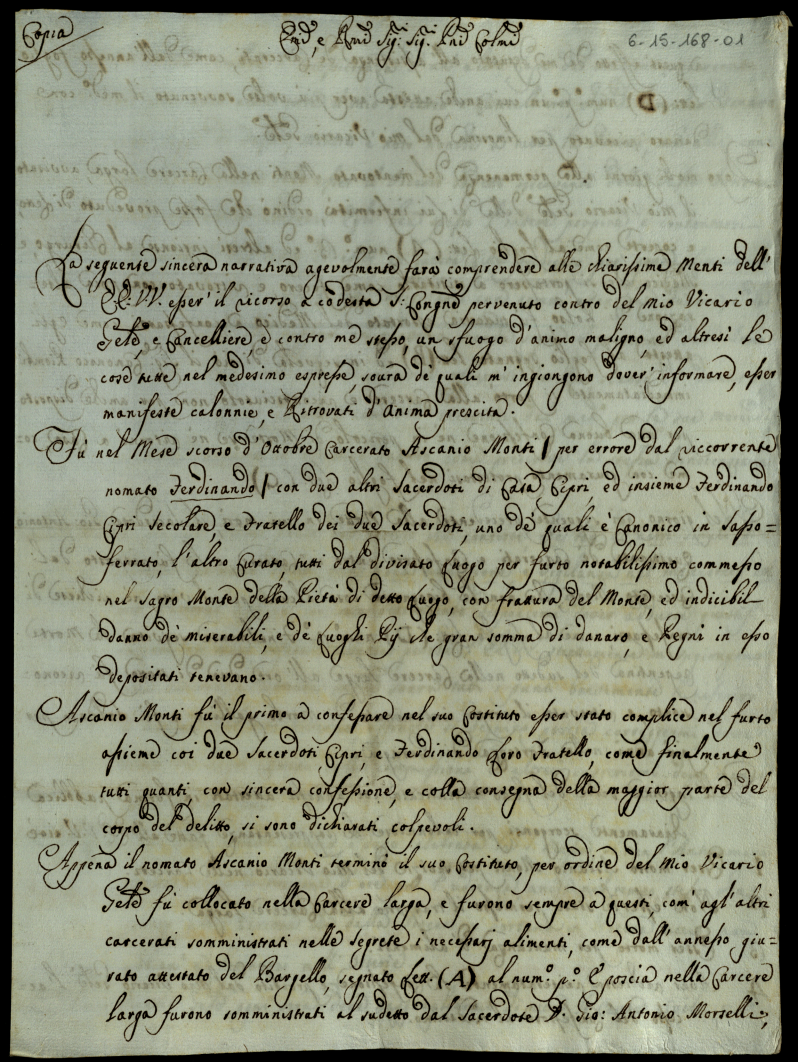 Copia
Emi, e Rmi Sig.ri Sig.ri Pni Colmi
6-15-168-01
La seguente sincera narrativa agevolmente farà comprendere alle chiarissime Menti dell'
EE: VV. esser' il ricorso a codesta S: Congne pervenuto contro del mio Vicario
Gele, e Cancelliere, e contro me stesso, un sfuogo d'animo maligno, ed altresì le
cose tutte nel medesimo espresse, soura de quali m' ingiongono dover' informare, esser
manifeste calonnie, e Ritrovati d'Anima prescita.
Fù nel Mese scorso d'Ottobre Carcerato Ascanio Monti / per errore dal riccorrente
nomato Ferdinando / con due altri Sacerdoti di Casa Cipri, ed insieme Ferdinando
Cipri Secolare, e Fratello dei due Sacerdoti, uno de quali è Canonico in Sasso=
ferrato, l'altro Curato, tutti dal divisato Luogo per furto notabilissimo commesso
nel Sagro Monte della Pietà di detto Luogo, con frattura del Monte, ed indicibil
danno de miserabili, e de Luoghi Pij che gran somma di danaro, e Pegni in esso
depositati tenevano.
Ascanio Monti fù il primo a confessare nel suo Costituto esser stato complice nel furto
assieme coi due Sacerdoti Cipri, e Ferdinando Loro Fratello, come finalmente
tutti quanti, con sincera confessione, e colla consegna della maggior parte del
corpo del delitto, si sono dichiarati colpevoli.
Appena il nomato Ascanio Monti terminò il suo Costituto, per ordine del Mio Vicario
Gele fù collocato nella Carcere larga, e furono sempre a questi, com' agl'altri
carcerati somministrati nelle segrete i necessarj alimenti, come dall'annesso giu=
rato attestato del Bargello, segnato Lett. (A) al num.o p.o E poscia nella Carcere
larga furono somministrati al sudetto dal Sacerdote D. Gio: Antonio Morselli,